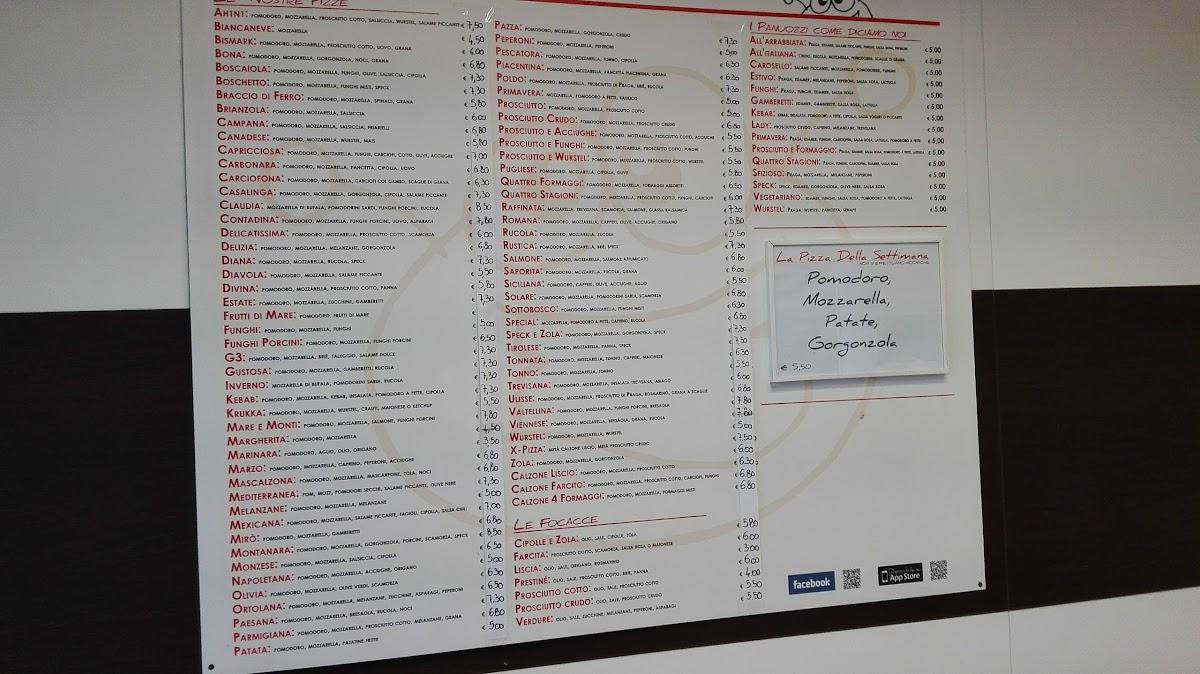 Le Nostre Pizze
Ah1n1: pomodoro, mozzarella, prosciutto cotto, salsiccia, wurstel, salame piccante € 7,50
Biancaneve: mozzarella € 4,50
Bismark: pomodoro, mozzarella, prosciutto cotto, uovo, grana € 6,00
Bona: pomodoro, mozzarella, gorgonzola, noci, grana € 6,80
Boscaiola: pomodoro, mozzarella, funghi, olive, salsiccia, cipolla € 7,30
Boschetto: pomodoro, mozzarella, funghi misti, speck € 7,30
Braccio di Ferro: pomodoro, mozzarella, spinaci, grana € 5,80
Brianzola: pomodoro, mozzarella, salsiccia € 6,00
Campana: pomodoro, mozzarella, salsiccia, friarielli € 6,80
Canadese: pomodoro, mozzarella, wurstel, mais € 5,80
Capricciosa: pomodoro, mozzarella, funghi, carciofi, cotto, olive, acciughe € 7,00
Carbonara: pomodoro, mozzarella, pancetta, cipolla, uovo € 6,80
Carciofona: pomodoro, mozzarella, carciofi col gambo, scaglie di grana € 6,30
Casalinga: pomodoro, mozzarella, gorgonzola, cipolla, salame piccante € 7,30
Claudia: mozzarella di bufala, pomodorini sardi, funghi porcini, rucola € 8,50
Contadina: pomodoro, mozzarella, funghi porcini, uovo, asparagi € 7,80
Delicatissima: pomodoro, mozzarella, prosciutto cotto, scamorza € 6,00
Delizia: pomodoro, mozzarella, melanzane, gorgonzola € 6,80
Diana: pomodoro, mozzarella, rucola, speck € 7,30
Diavola: pomodoro, mozzarella, salame piccante € 5,50
Divina: pomodoro, mozzarella, prosciutto cotto, panna € 5,80
Estate: pomodoro, mozzarella, zucchine, gamberetti € 7,30
Frutti di Mare: pomodoro, frutti di mare €
Funghi: pomodoro, mozzarella, funghi € 5,00
Funghi Porcini: pomodoro, mozzarella, funghi porcini € 6,50
G3: pomodoro, mozzarella, briè, taleggio, salame dolce € 7,30
Gustosa: pomodoro, mozzarella, gamberetti, rucola € 7,30
Inverno: mozzarella di bufala, pomodorini sardi, rucola € 7,30
Kebab: pomodoro, mozzarella, kebab, insalata, pomodoro a fette, cipolla € 7,30
Krukka: pomodoro, mozzarella, wurstel, crauti, maionese o ketchup € 5,50
Mare e Monti: pomodoro, mozzarella, salmone, funghi porcini € 7,80
Margherita: pomodoro, mozzarella € 4,50
Marinara: pomodoro, aglio, olio, origano € 3,50
Marzo: pomodoro, mozzarella, caprino, peperoni, acciughe € 6,80
Mascalzona: pomodoro, mozzarella, mascarpone, zola, noci € 6,80
Mediterranea: pom, mozz, pomodori secchi, salame piccante, olive nere € 7,30
Melanzane: pomodoro, mozzarella, melanzane € 5,00
Mexicana: pomodoro, mozzarella, salame piccante, fagioli, cipolla, salsa chili € 7,00
Mirò: pomodoro, mozzarella, gamberetti € 6,80
Montanara: pomodoro, mozzarella, gorgonzola, porcini, scamorza, speck € 8,50
Monzese: pomodoro, mozzarella, salsiccia, cipolla € 6,50
Napoletana: pomodoro, mozzarella, acciughe, origano € 5,00
Olivia: pomodoro, mozzarella, olive verdi, scamorza € 6,30
Ortolana: pomodoro, mozzarella, melanzane, zucchine, asparagi, peperoni € 6,50
Paesana: pomodoro, mozzarella, bresaola, rucola, noci € 7,30
Parmigiana: pomodoro, mozzarella, prosciutto cotto, melanzane, grana € 6,80
Patata: pomodoro, mozzarella, patatine fritte € 5,00
Pazza: pomodoro, mozzarella, gorgonzola, crudo € 7,30
Peperoni: pomodoro, mozzarella, peperoni € 5,00
Pescatora: pomodoro, mozzarella, tonno, cipolla € 6,30
Piacentina: pomodoro, mozzarella, pancetta piacentina, grana € 6,30
Poldo: pomodoro, mozzarella, prosciutto di Praga, briè, rucola € 7,30
Primavera: mozzarella, pomodoro a fette, basilico € 5,00
Prosciutto: pomodoro, mozzarella, prosciutto cotto € 5,00
Prosciutto Crudo: pomodoro, mozzarella, prosciutto crudo € 6,50
Prosciutto e Acciughe: pomodoro, mozzarella, prosciutto cotto, acciughe € 5,50
Prosciutto e Funghi: pomodoro, mozzarella, prosciutto cotto, funghi € 5,50
Prosciutto e Wurstel: pomodoro, mozzarella, prosciutto cotto, wurstel € 5,50
Pugliese: pomodoro, mozzarella, cipolla, olive € 5,80
Quattro Formaggi: pomodoro, mozzarella, formaggi assortiti € 6,50
Quattro Stagioni: pomodoro, mozzarella, prosciutto cotto, funghi, carciofi € 6,00
Raffinata: mozzarella, trevigiana, scamorza, salmone, glassa balsamica € 7,30
Romana: pomodoro, mozzarella, capperi, olive, acciughe, origano € 5,80
Rucola: pomodoro, mozzarella, rucola € 5,50
Rustica: pomodoro, mozzarella, briè, speck € 7,30
Salmone: pomodoro, mozzarella, salmone affumicato € 6,80
Saporita: pomodoro, mozzarella, rucola, grana € 6,00
Siciliana: pomodoro, capperi, olive, acciughe, aglio € 5,50
Solare: pomodoro, mozzarella, pomodorini sardi, scamorza € 6,80
Sottobosco: pomodoro, mozzarella, funghi misti € 6,30
Special: mozzarella, pomodoro a fette, caprino, rucola € 6,80
Speck e Zola: pomodoro, mozzarella, gorgonzola, speck € 7,30
Tirolese: pomodoro, mozzarella, panna, speck € 7,30
Tonnata: pomodoro, mozzarella, tonno, capperi, maionese € 6,30
Tonno: pomodoro, mozzarella, tonno € 5,50
Trevisana: pomodoro, mozzarella, insalata trevisana, asiago € 6,00
Ulisse: pomodoro, mozzarella, prosciutto di Praga, rosmarino, grana a scaglie € 6,80
Valtellina: pomodoro, mozzarella, funghi porcini, bresaola € 7,80
Viennese: pomodoro, mozzarella, bresaola, grana, rucola € 7,80
Wurstel: pomodoro, mozzarella, wurstel € 5,00
X-Pizza: metà calzone liscio, metà prosciutto crudo € 7,50
Zola: pomodoro, mozzarella, gorgonzola € 6,00
Calzone Liscio: pomodoro, mozzarella, prosciutto cotto € 6,30
Calzone Farcito: pomodoro, mozzarella, prosciutto cotto, carciofi, funghi € 6,80
Calzone 4 Formaggi: pomodoro, mozzarella, formaggi misti € 6,80
Le Focacce
Cipolle e Zola: olio, sale, cipolle, zola € 5,80
Farcita: prosciutto cotto, scamorza, salsa rosa o maionese € 6,00
Liscia: olio, sale, origano, rosmarino € 3,00
Prestiné: olio, sale, prosciutto cotto, briè, panna € 6,00
Prosciutto cotto: olio, sale, prosciutto cotto € 4,00
Prosciutto crudo: olio, sale, prosciutto crudo € 5,50
Verdure: olio, sale, zucchine, melanzane, peperoni, asparagi € 5,50
I Panuozzi come diciamo noi
All'arrabbiata: Praga, edamer, salame piccante, funghi, salsa rosa, peperoni € 5,00
All'italiana: crudo, rucola, mozzarella, pomodorini, scaglie di grana € 5,00
Carosello: salame piccante, mozzarella, pomodorini, funghi € 5,00
Estivo: Praga, edamer, melanzane, peperoni, salsa rosa, lattuga € 5,00
Funghi: Praga, funghi, edamer, salsa rosa € 5,00
Gamberetti: edamer, gamberetti, salsa rosa, lattuga € 5,00
Kebab: kebab, insalata, pomodoro a fette, cipolla, salsa yogurt o piccante € 5,00
Lady: prosciutto crudo, caprino, melanzane, trevigiana € 5,00
Primavera: Praga, edamer, carciofini, salsa rosa, lattuga, pomodoro a fette € 5,00
Prosciutto e Formaggio: Praga, edamer, salsa rosa, pomodoro a fette, lattuga € 5,00
Quattro Stagioni: Praga, funghi, carciofini, edamer, salsa rosa € 5,00
Sfizioso: Praga, mozzarella, melanzane, peperoni € 5,00
Speck: speck, edamer, gorgonzola, olive nere, salsa rosa € 5,00
Vegetariano: edamer, funghi, salsa rosa, pomodoro a fette, lattuga € 5,00
Wurstel: Praga, wurstel, pancetta, senape € 5,00
La Pizza Della Settimana
Pomodoro,
Mozzarella,
Patate,
Gorgonzola
€ 5,50
facebook
Disponibile su
App Store